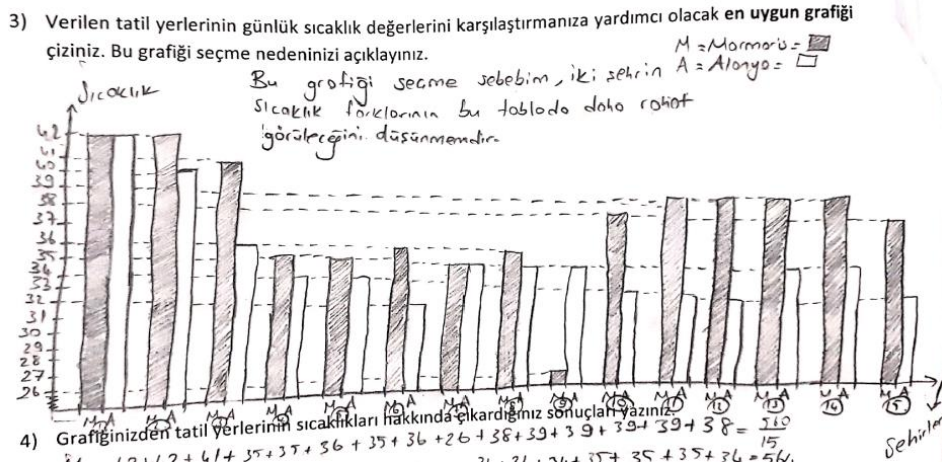 3) Verilen tatil yerlerinin günlük sıcaklık değerlerini karşılaştırmanıza yardımcı olacak en uygun grafiği
çiziniz. Bu grafiği seçme nedeninizi açıklayınız.
M = Marmaris =
A = Alanya =
Bu grafiği seçme sebebim, iki şehrin
sıcaklık farklarının bu tabloda daha rahat
görüleceğini düşünmemdir.
Sıcaklık
42
41
40
39
38
37
36
35
34
33
32
31
30
29
28
27
26
M A M A M A M A M A M A M A M A M A M A M A M A M A M A M A
Şehirler
4) Grafiğinizden tatil yerlerinin sıcaklıkları hakkında çıkardığınız sonuçları yazınız.
+ 41 + 35 + 35 + 36 + 35 + 36 + 26 + 38 + 39 + 39 + 39 + 39 + 38 = 560
15
35 + 35 + 36 =